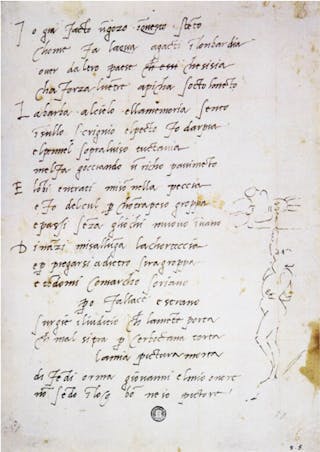 I o gia facto ngozo in questo steto
chome fa lacqua agacti i lombardia
over daltro paese ch essi chesisia
cha forza lventre apicha socto lmeto
L a barba alcielo ellamemoria sento
i sullo scrignio elpecto fo darpia
elpennel sopraluiso tuctauia
melfa gocciando u richo pauimeto
E lobi entrati miso nella peccia
e fo delcul p cotrapeso groppa
e passi seza gliochi muouo iuano
D inazi misalluga lachorteccia
e p piegarsi adietro siragroppa
e tedomi comarcho soriano
po fallace e strano
surgie iliuditio ch lamete porta
ch mal sitra p cerboctana torta
lamia pictura morta
di fedi orma giovanni elmio onore
no sedo iloco bo ne io pictore